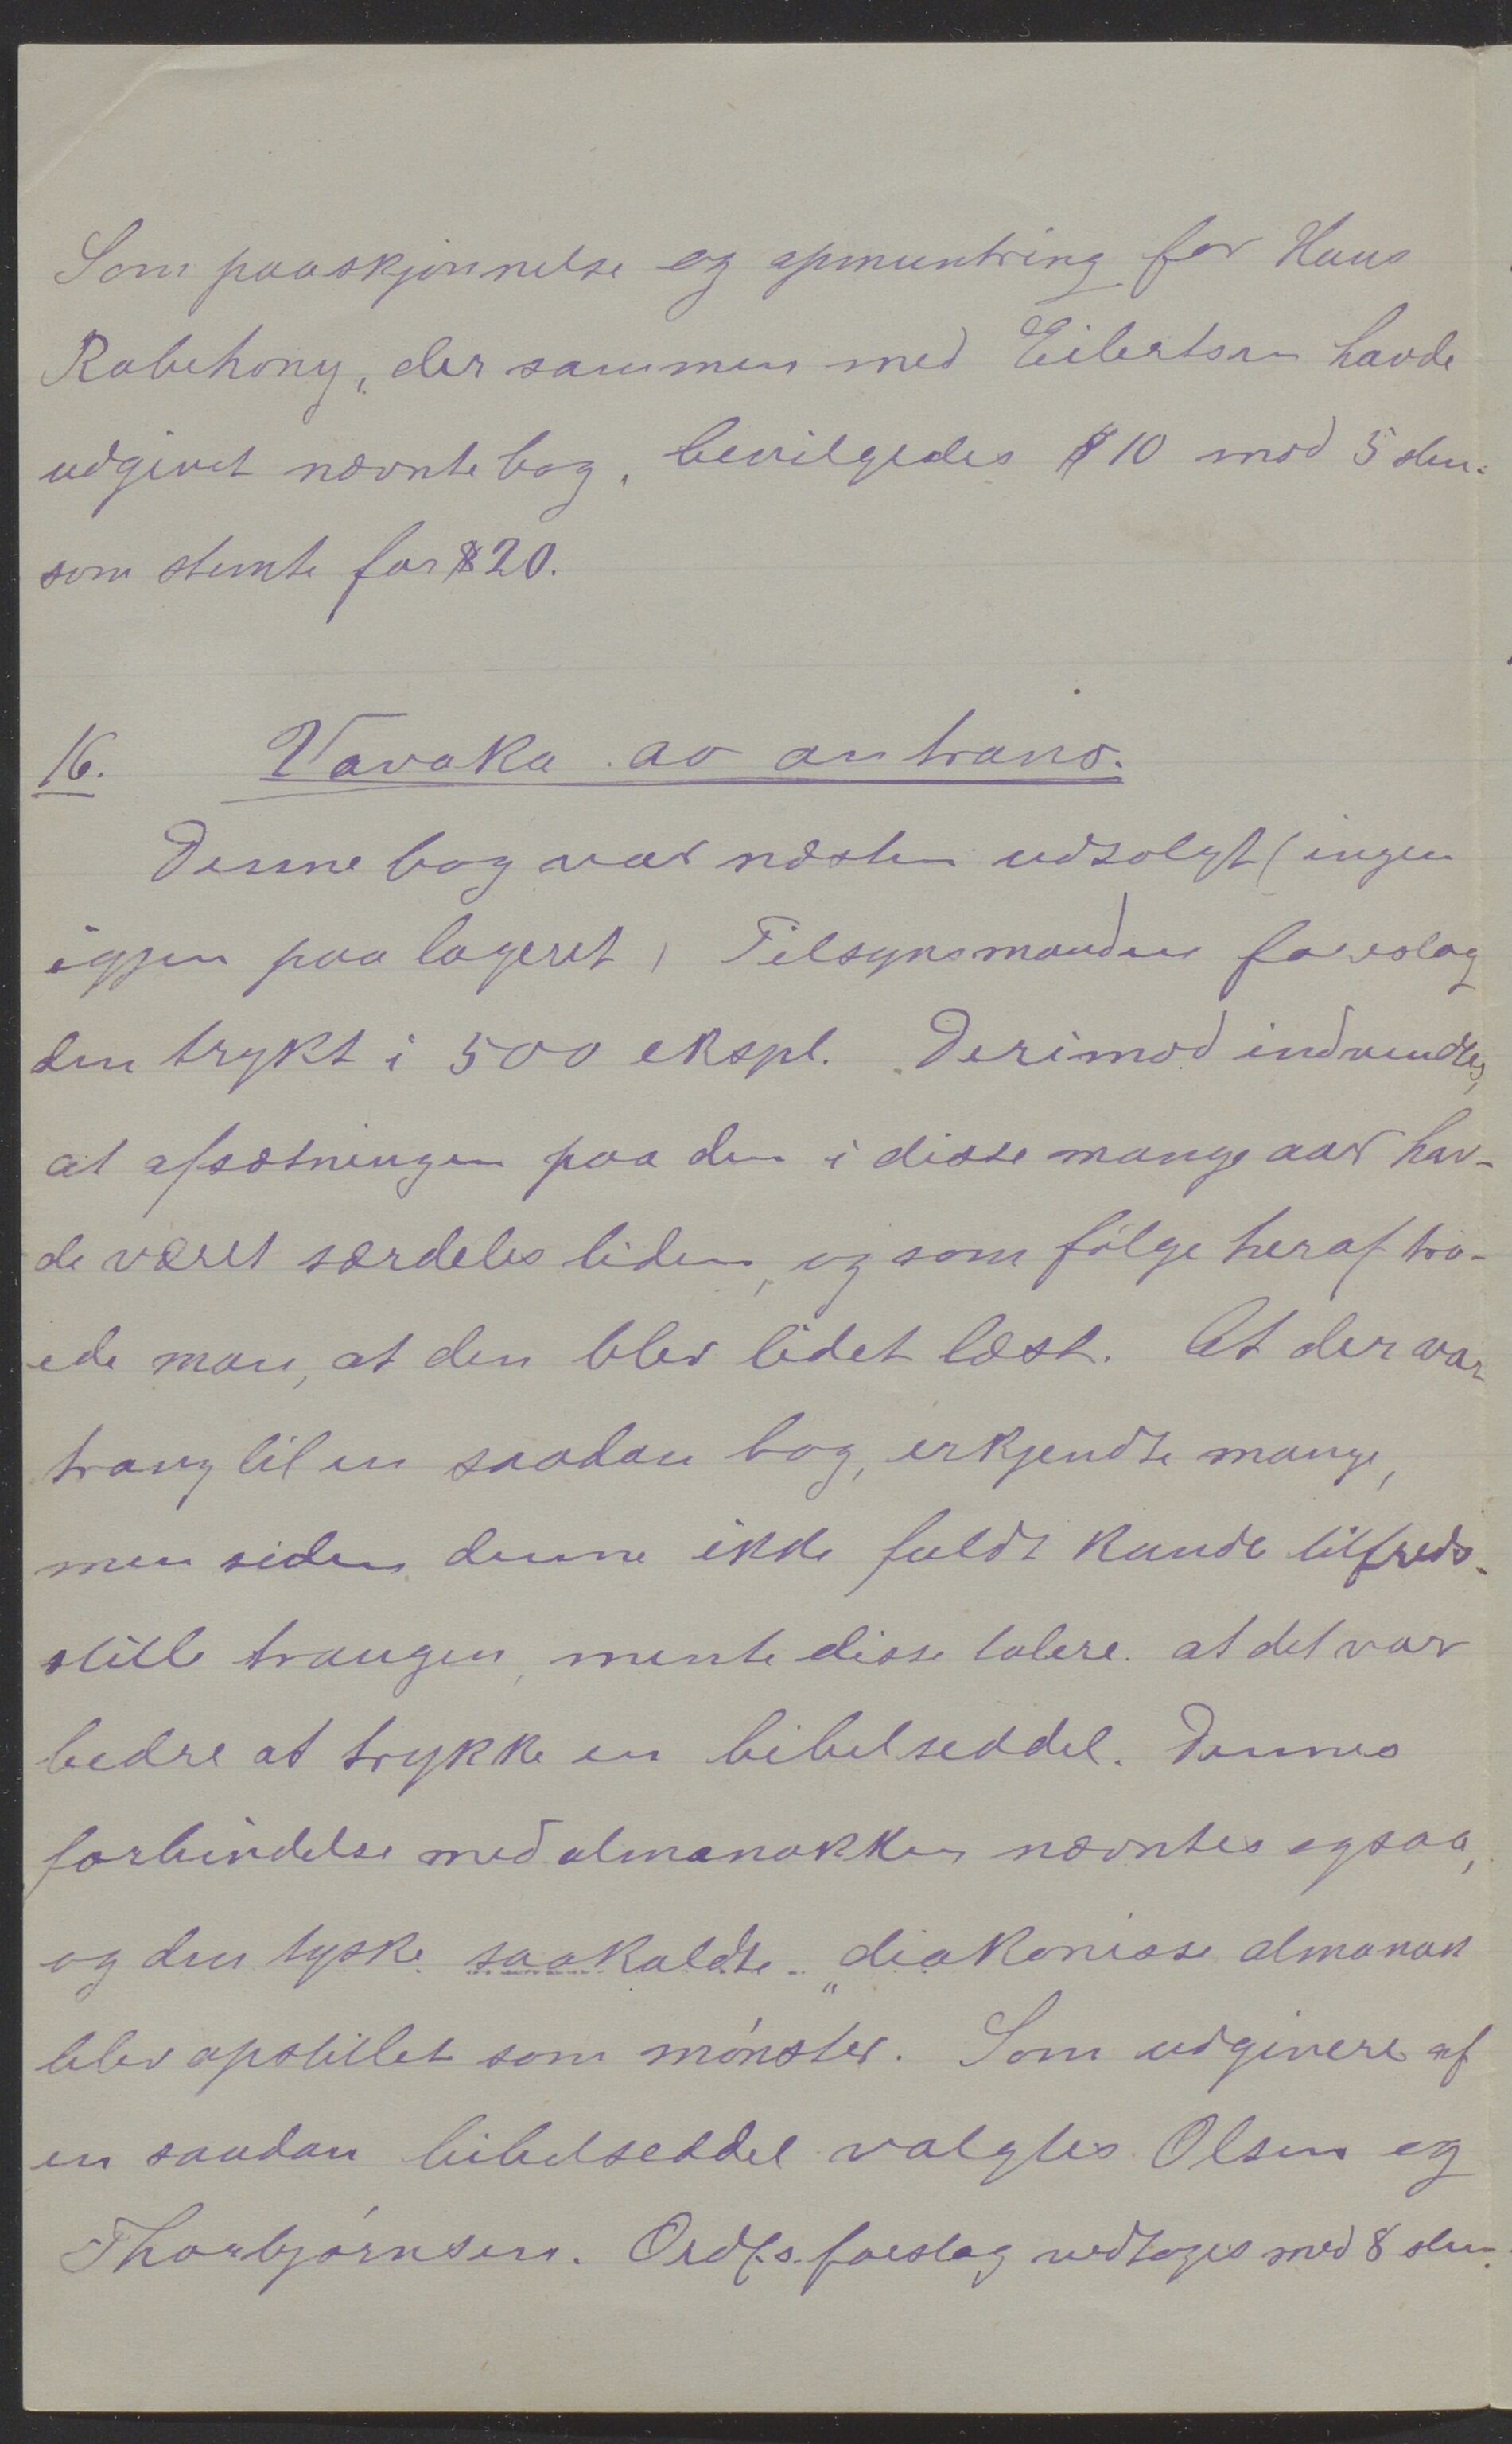 Som paaskjønnelse og opmuntring for Hans
Rabehony, der sammen med Eilertsen havde
udgivet nævnte bog, bevilgedes $ 10 mod 5 stem.
som stemte for $ 20.
16. Vavaka ao an trano.
Denne bog var næsten udsolgt (ingen
igjen paa lageret) Tilsynsmanden foreslog
den trykt i 500 ekspl. Derimod indvendtes,
at afsætningen paa den i disse mange aar hav-
de været særdeles liden, og som følge heraf tro-
ede man, at den blev lidet læst. At der var
trang til en saadan bog, erkjendte mange,
men siden denne ikke fuldt kunde tilfreds-
stille trangen, mente disse talere at det var
bedre at trykke en bibelseddel. Dennes
forbindelse med almanakken nævntes ogsaa,
og den tyske saakaldte „diakonisse almanak
blev opstillet som mønster. Som udgivere af
en saadan bibelseddel valgtes Olsen og
Thorbjørnsen. Ordf.s. forslag vedtoges med 8 stem.